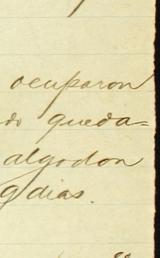 ocuparon
do queda=
algodon
g dias.